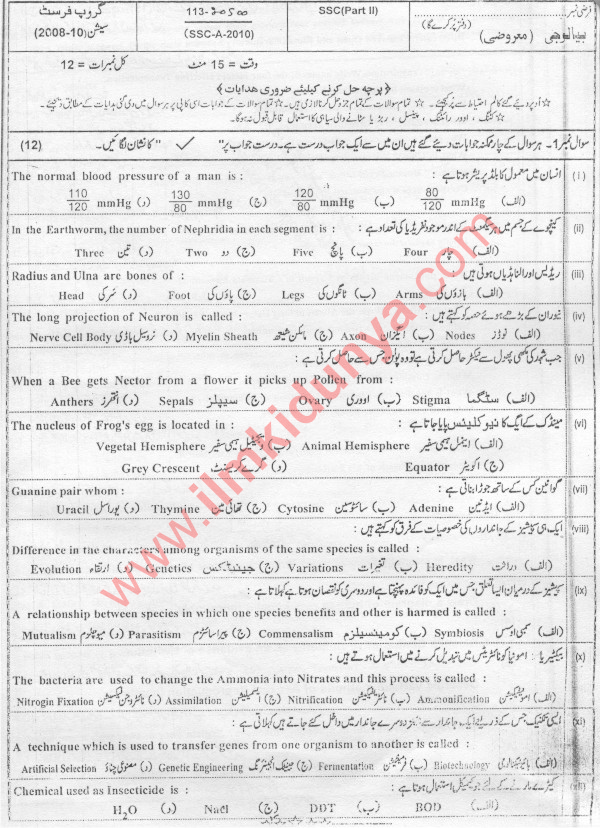 گروپ فرسٹ
سیشن (2008-10)
113-
(SSC-A-2010)
SSC(Part II)
فرضی نمبر
(دفتر پر کرے گا)
بیالوجی (معروضی)
کل نمبرات = 12
وقت = 15 منٹ
پرچہ حل کرنے کیلئے ضروری ھدایات
سوال نمبر 1۔ ہر سوال کے چار ممکنہ جوابات دیئے گئے ہیں ان میں سے ایک جواب درست ہے۔ درست جواب پر " ✓ " کا نشان لگائیں۔ (12)
(i) انسان میں معمول کا بلڈ پریشر ہوتا ہے :
The normal blood pressure of a man is :
(الف) 80/120 mmHg (ب) 120/80 mmHg (ج) 130/80 mmHg (د) 110/120 mmHg
(ii) کیچوے کے جسم میں ہر سیگمنٹ کے اندر موجود نفریڈیا کی تعداد ہے :
In the Earthworm, the number of Nephridia in each segment is :
(الف) چار Four (ب) پانچ Five (ج) دو Two (د) تین Three
(iii) ریڈیس اور النا ہڈیاں ہوتی ہیں
Radius and Ulna are bones of :
(الف) بازوؤں کی Arms (ب) ٹانگوں کی Legs (ج) پاؤں کی Foot (د) سر کی Head
(iv) نیوران کے بڑھے ہوئے حصہ کو کہتے ہیں :
The long projection of Neuron is called :
(الف) نوڈز Nodes (ب) ایگزان Axon (ج) مائلن شیتھ Myelin Sheath (د) نرو سیل باڈی Nerve Cell Body
(v) جب شہد کی مکھی پھول سے نیکٹر حاصل کرتی ہے تو وہ پولن جس سے حاصل کرتی ہے :
When a Bee gets Nector from a flower it picks up Pollen from :
(الف) سٹگما Stigma (ب) اووری Ovary (ج) سیپلز Sepals (د) انتھرز Anthers
(vi) مینڈک کے ایگ کا نیوکلیئس پایا جاتا ہے :
The nucleus of Frog's egg is located in :
(الف) اینمل ہیمی سفیر Animal Hemisphere (ب) ویجیٹل ہیمی سفیر Vegetal Hemisphere
(ج) اکویٹر Equator (د) گرے کریسنٹ Grey Crescent
(vii) گوانین کس کے ساتھ جوڑا بناتی ہے :
Guanine pair whom :
(الف) ایڈینین Adenine (ب) سائٹوسین Cytosine (ج) تھائی مین Thymine (د) یوراسل Uracil
(viii) ایک ہی سپیشیز کے جانداروں کی خصوصیات کے فرق کو کہتے ہیں :
Difference in the characters among organisms of the same species is called :
(الف) وراثت Heredity (ب) تغیرات Variations (ج) جینیٹکس Genetics (د) ارتقاء Evolution
(ix) سپیشیز کے درمیان ایسا تعلق جس میں ایک کو فائدہ پہنچتا ہے اور دوسری کو نقصان ہوتا ہے کہلاتا ہے
A relationship between species in which one species benefits and other is harmed is called :
(الف) سمبی اوسس Symbiosis (ب) کومینسیلزم Commensalism (ج) پیراسائٹزم Parasitism (د) میوچلزم Mutualism
(x) بیکٹیریا : امونیا کو نائٹریٹس میں تبدیل کرنے میں استعمال ہوتے ہیں :
The bacteria are used to change the Ammonia into Nitrates and this process is called :
(الف) امونیفیکیشن Ammonification (ب) نائٹریفیکیشن Nitrification (ج) اسیمیلیشن Assimilation (د) نائٹروجن فکسیشن Nitrogin Fixation
(xi) ایسی تکنیک جس کے ذریعے ایک جاندار سے جینز دوسرے جاندار میں داخل کئے جاتے ہیں کہلاتی ہے
A technique which is used to transfer genes from one organism to another is called :
(الف) بائیوٹیکنالوجی Biotechnology (ب) فرمنٹیشن Fermentation (ج) جینیٹک انجینئرنگ Genetic Engineering (د) مصنوعی چناؤ Artificial Selection
(xii) کیڑے مارنے کے لئے جو کیمیکل استعمال ہوتا ہے :
Chemical used as Insecticide is :
(الف) BOD (ب) DDT (ج) Nacl (د) H2O
www.ilmkidunya.com